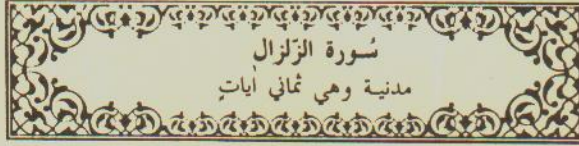 سُورة الزّلزالِ
مدنية وهي ثماني اٰياتٍ